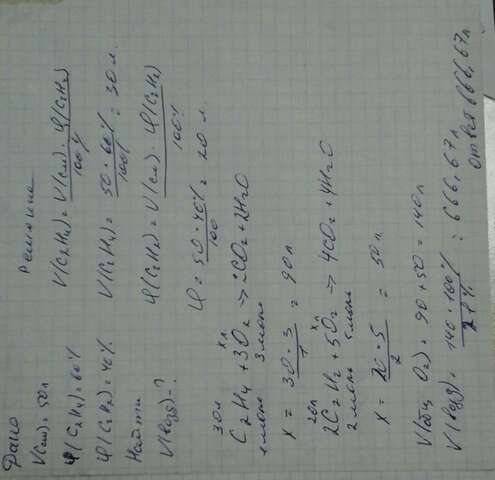 Дано
V(см) = 50л
φ(C₂H₄) = 60%
φ(C₂H₂) = 40%
Найти
V(возд) - ?
Решение
V(C₂H₄) = V(см) · φ(C₂H₄) / 100%
V(C₂H₄) = 50 · 60% / 100% = 30 л.
φ(C₂H₂) = V(см) · φ(C₂H₂) / 100%
φ = 50 · 40% / 100 = 20 л.
30л xл
C₂H₄ + 3O₂ → 2CO₂ + 2H₂O
1моль 3моль
x = 30 · 3 / 1 = 90л
20л xл
2C₂H₂ + 5O₂ → 4CO₂ + 4H₂O
2моль 5моль
x = 20 · 5 / 2 = 50л
V(общ O₂) = 90 + 50 = 140л
V(возд) = 140 · 100% / 21% = 666,67л
ответ 666,67л